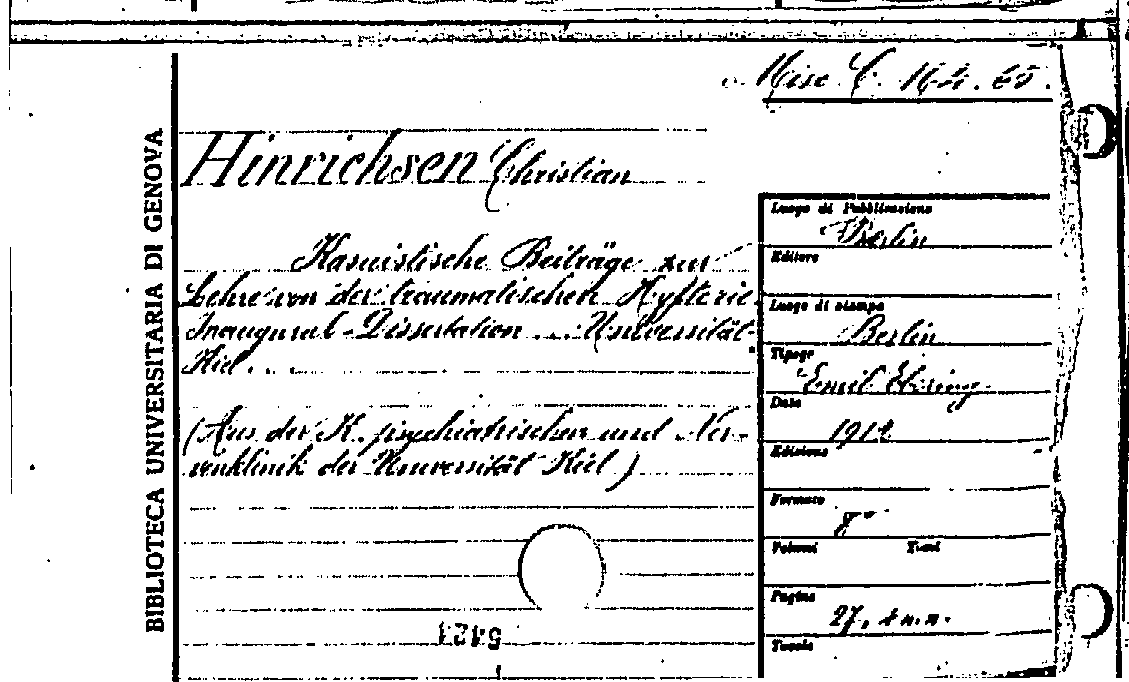 Misc. C. 164. 65.
BIBLIOTECA UNIVERSITARIA DI GENOVA
Hinrichsen Christian
Kasuistische Beiträge zur
Lehre von der traumatischen Hysterie.
Inaugural-Dissertation .... Universität
Kiel ...
(Aus der K. psychiatrischen und Ner-
venklinik der Universität Kiel)
5421
Luogo di Pubblicazione
Berlin
Editore
Luogo di stampa
Berlin
Tipogr
Emil Ebering
Data
1912
Edizione
Formato
8°
Volumi Tomi
Pagine
27, 2 n.n.
Tavole